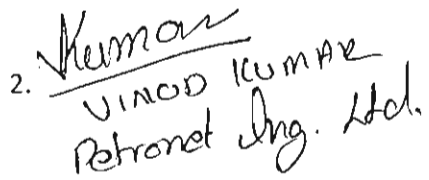 2. Kumar
VINOD KUMAR
Petronet lng. Ltd.